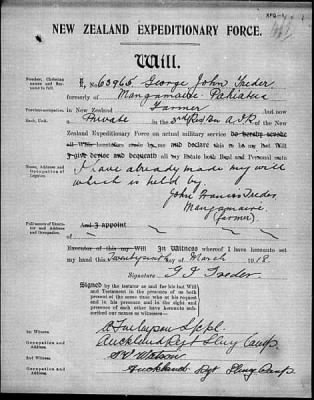 NEW ZEALAND EXPEDITIONARY FORCE.
Will.
Number, Christian names and Surname in full.
I, No 63965 George John Treder
formerly of Mangamaire Pahiatua
Previous occupation.
in New Zealand Farmer and now
Rank, Unit.
a Private in the 3rd Res Bn of the New
Zealand Expeditionary Force on actual military service do hereby revoke
all Wills heretofore made by me and declare this to be my last Will
Name, Address and Occupation of Legatee.
I give devise and bequeath all my Estate both Real and Personal unto
I have already made my will
which is held by
John Francis Treder
Mangamaire
(farmer)
Full names of Executor and Address and Occupation.
And I appoint
Executor of this my Will In Witness whereof I have hereunto set
my hand this day of March 1918.
Signature G J Treder
Signed by the testator as and for his last Will
and Testament in the presence of us both
present at the same time who at his request
and in his presence and in the sight and
presence of each other have hereunto subscribed our names as witnesses:—
1st Witness
A Finlayson
Occupation and Address.
Auckland Regt Sling Camp
2nd Witness
Watson
Occupation and Address.
Auckland Rgt Sling Camp